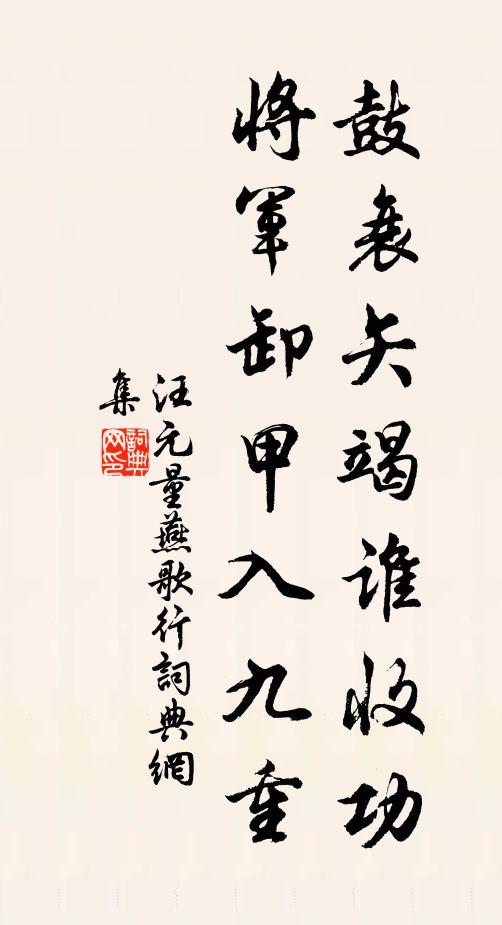 鼓衰矢竭谁收功
將軍卸甲入九重
汪元量燕歌行詞典網
集
詞典
网印